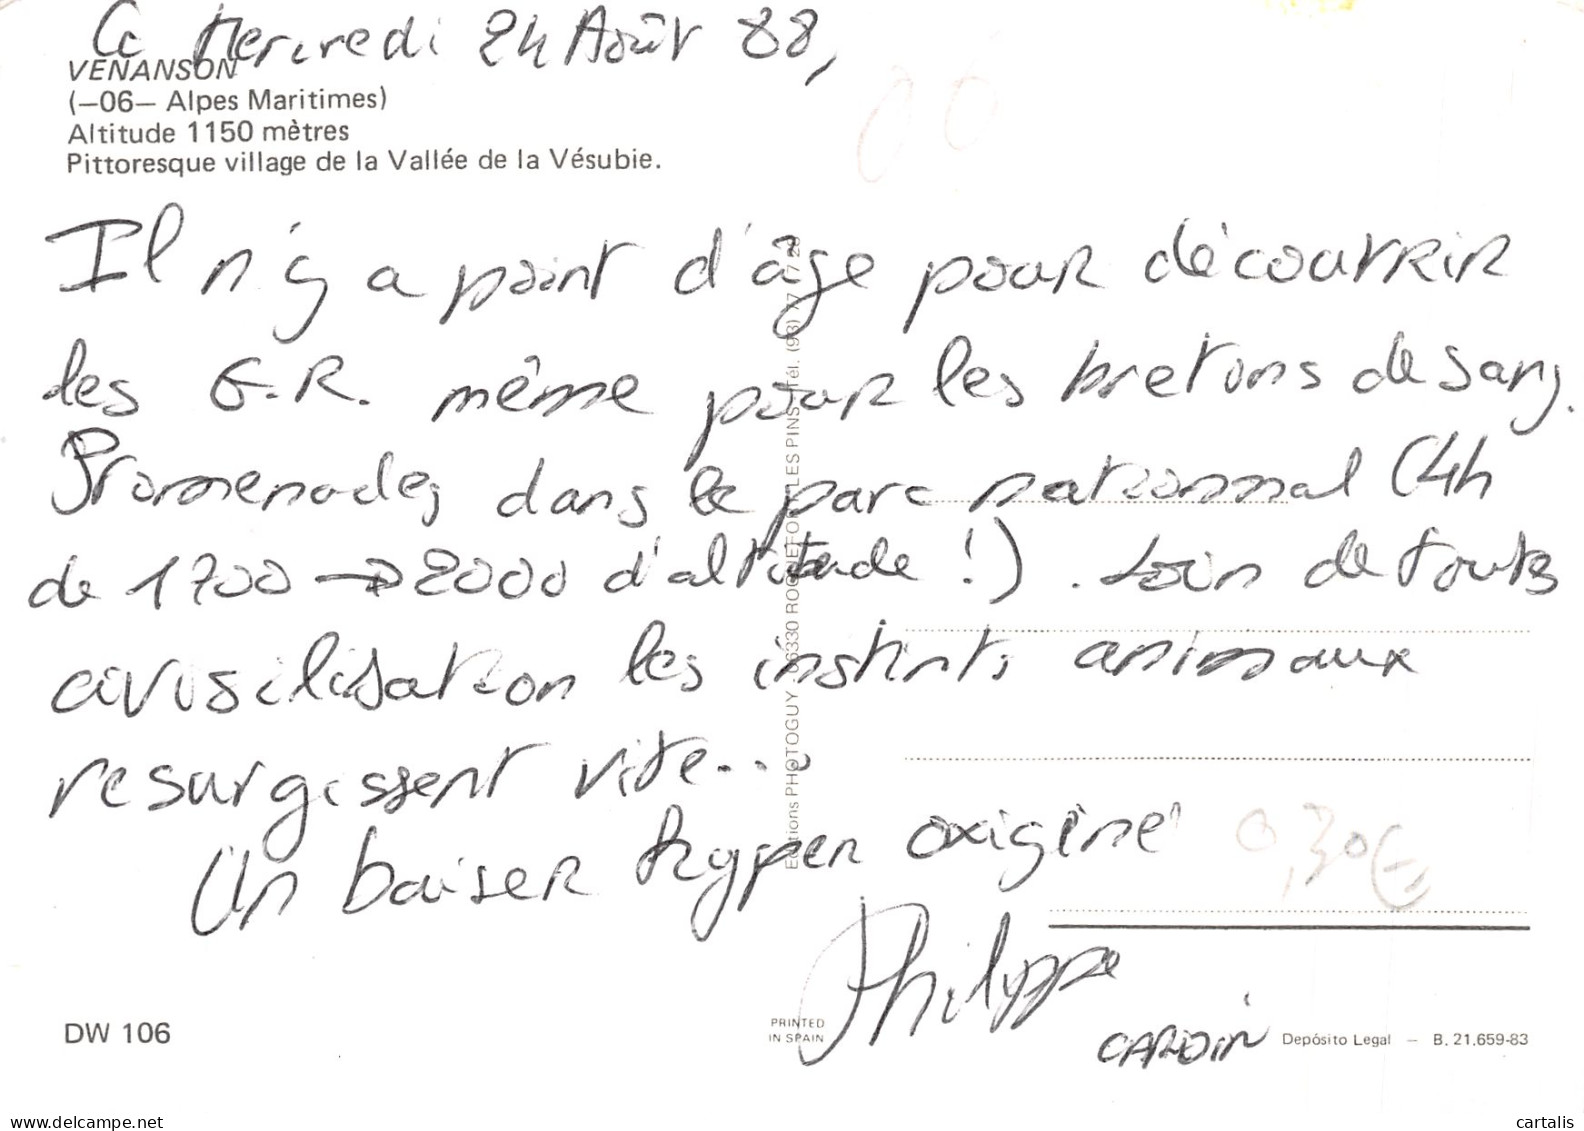 Ce Mercredi 24 Août 88,
VENANSON
(—06— Alpes Maritimes)
Altitude 1150 mètres
Pittoresque village de la Vallée de la Vésubie.
Il n'y a point d'âge pour découvrir
les G.R. même pour les bretons de sang.
Promenades dans le parc nationnal (4h
de 1700 → 2000 d'altitude !). Loin de toute
civisilisation les instincts animaux
resurgissent vite...
Un baiser hyper oxigéné
Philippe
CARDIN
0,30€
06
Editions PHOTOGUY 06330 ROQUEFORT LES PINS Tél. (93)
DW 106
PRINTED
IN SPAIN
Depósito Legal — B. 21.659-83
delcampe.net
cartalis